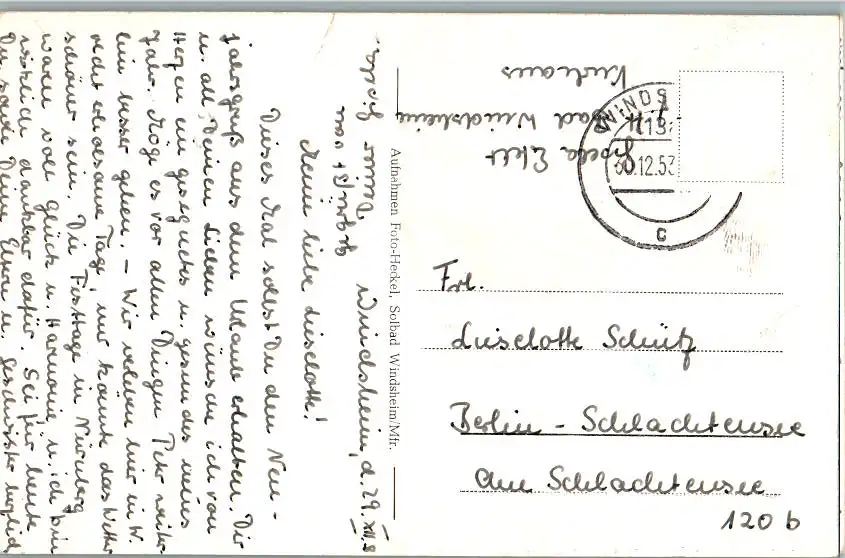 Windsheim, d. 29. XII. 5
Meine liebe Lieselotte!
Dieses Mal sollst Du den Neu-
jahrsgruß aus dem Urlaub erhalten. Dir
u. all Deinen Lieben wünsche ich von
Herzen ein gesegnetes u. gesundes neues
Jahr. Möge es vor allen Dingen Peter weiter-
hin besser gehen. – Wir verleben hier in W.
recht erholsame Tage, nur könnte das Wetter
schöner sein. Die Festtage in Nürnberg
waren voll Glück u. Harmonie u. ich bin
wirklich dankbar dafür. Sei für heute
Du sowie Deine Eltern u. Geschwister herzlich
gegrüßt von
Deiner Gisela.
Aufnahmen Foto-Heckel, Solbad Windsheim/Mfr.
Gisela
Bad Windsheim
Kurhaus
WINDS
30.12.53
c
Frl.
Lieselotte Schütz
Berlin - Schlachtensee
Am Schlachtensee
120 b